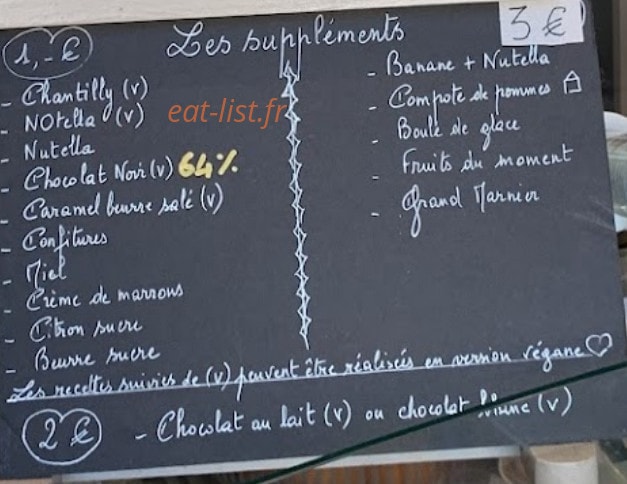 Les suppléments
1,- €
- Chantilly (v)
- NOtella (v)
- Nutella
- Chocolat Noir (v) 64%
- Caramel beurre salé (v)
- Confitures
- Miel
- Crème de marrons
- Citron sucre
- Beurre sucre
3 €
- Banane + Nutella
- Compote de pommes
- Boule de glace
- Fruits du moment
- Grand Marnier
eat-list.fr
Les recettes suivies de (v) peuvent être réalisées en version végane
2 €
- Chocolat au lait (v) ou chocolat blanc (v)